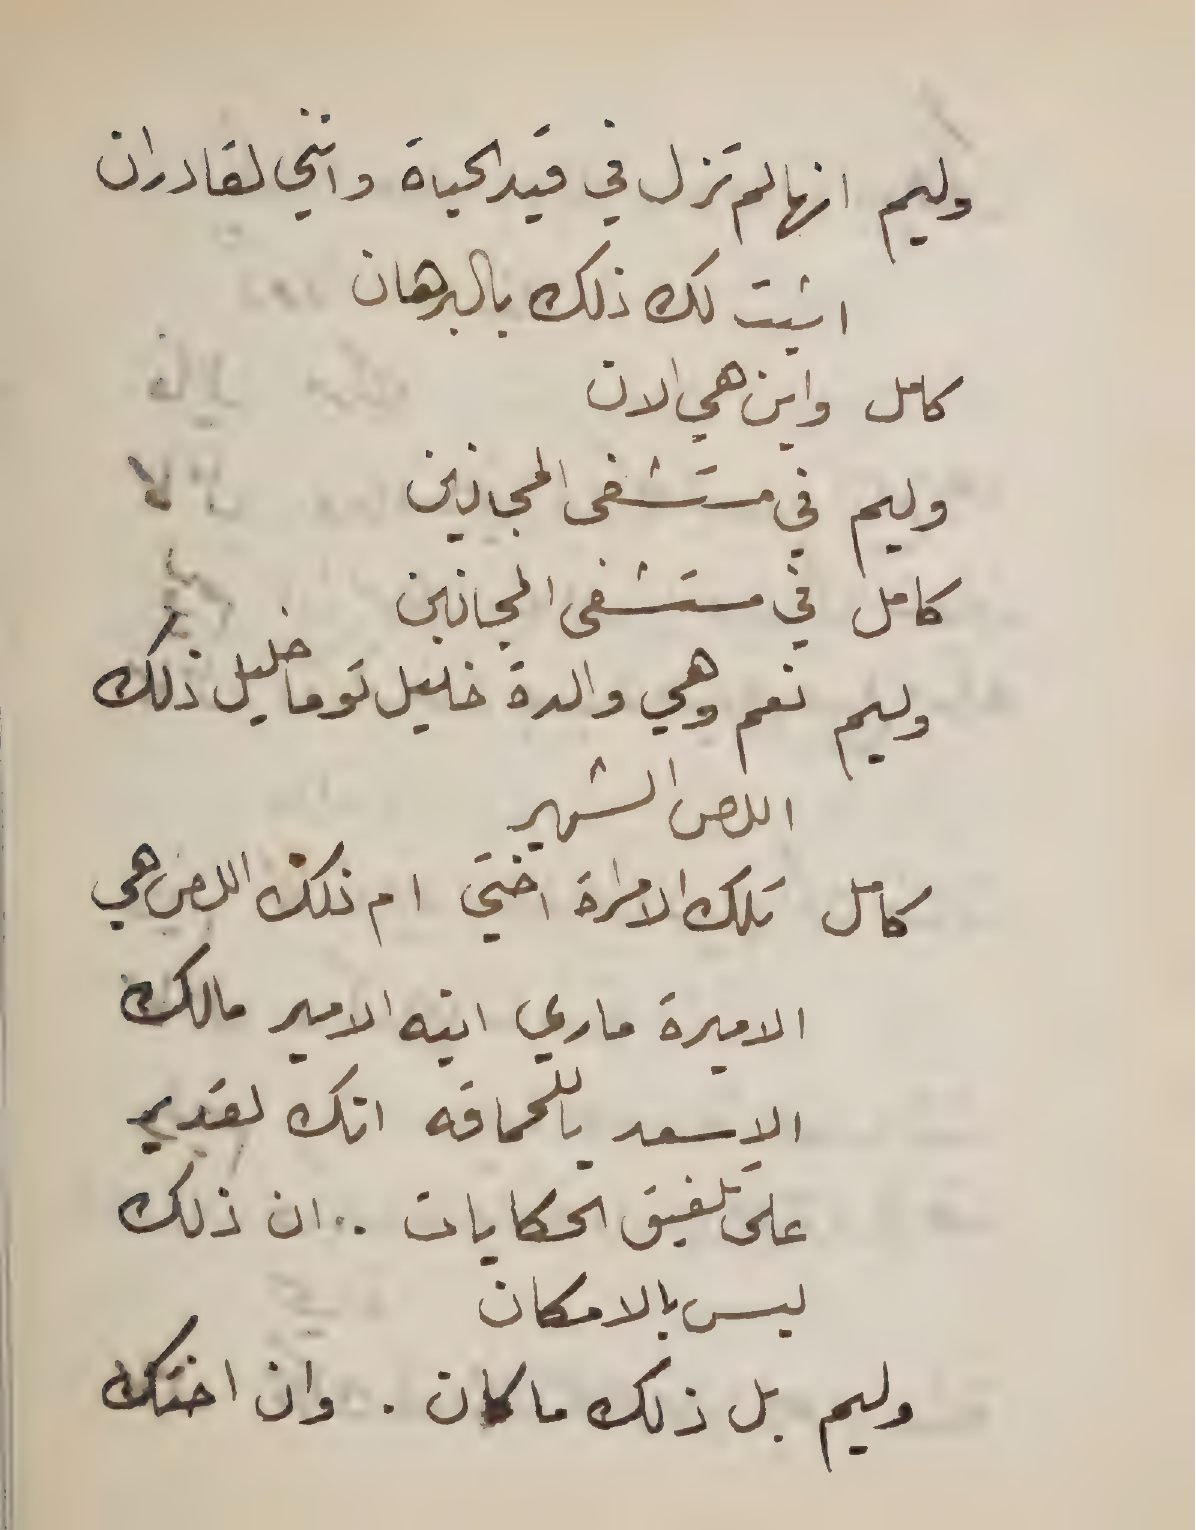 وليم انها لم تزل في قيد الحياة وانني لقادر ان
اثبت لك ذلك بالبرهان
كامل واين هي الان
وليم في مستشفى المجانين
كامل في مستشفى المجانين
وليم نعم وهي والدة خليل توما خليل ذلك
اللص الشهير
كامل تلك الامراة اختي ام ذلك اللص هي
الاميرة ماري ابنه الامير مالك
الاسعد ياللحماقه انك لقدير
على تلفيق الحكايات .. ان ذلك
ليس بالامكان
وليم بل ذلك ما كان . وان اختك